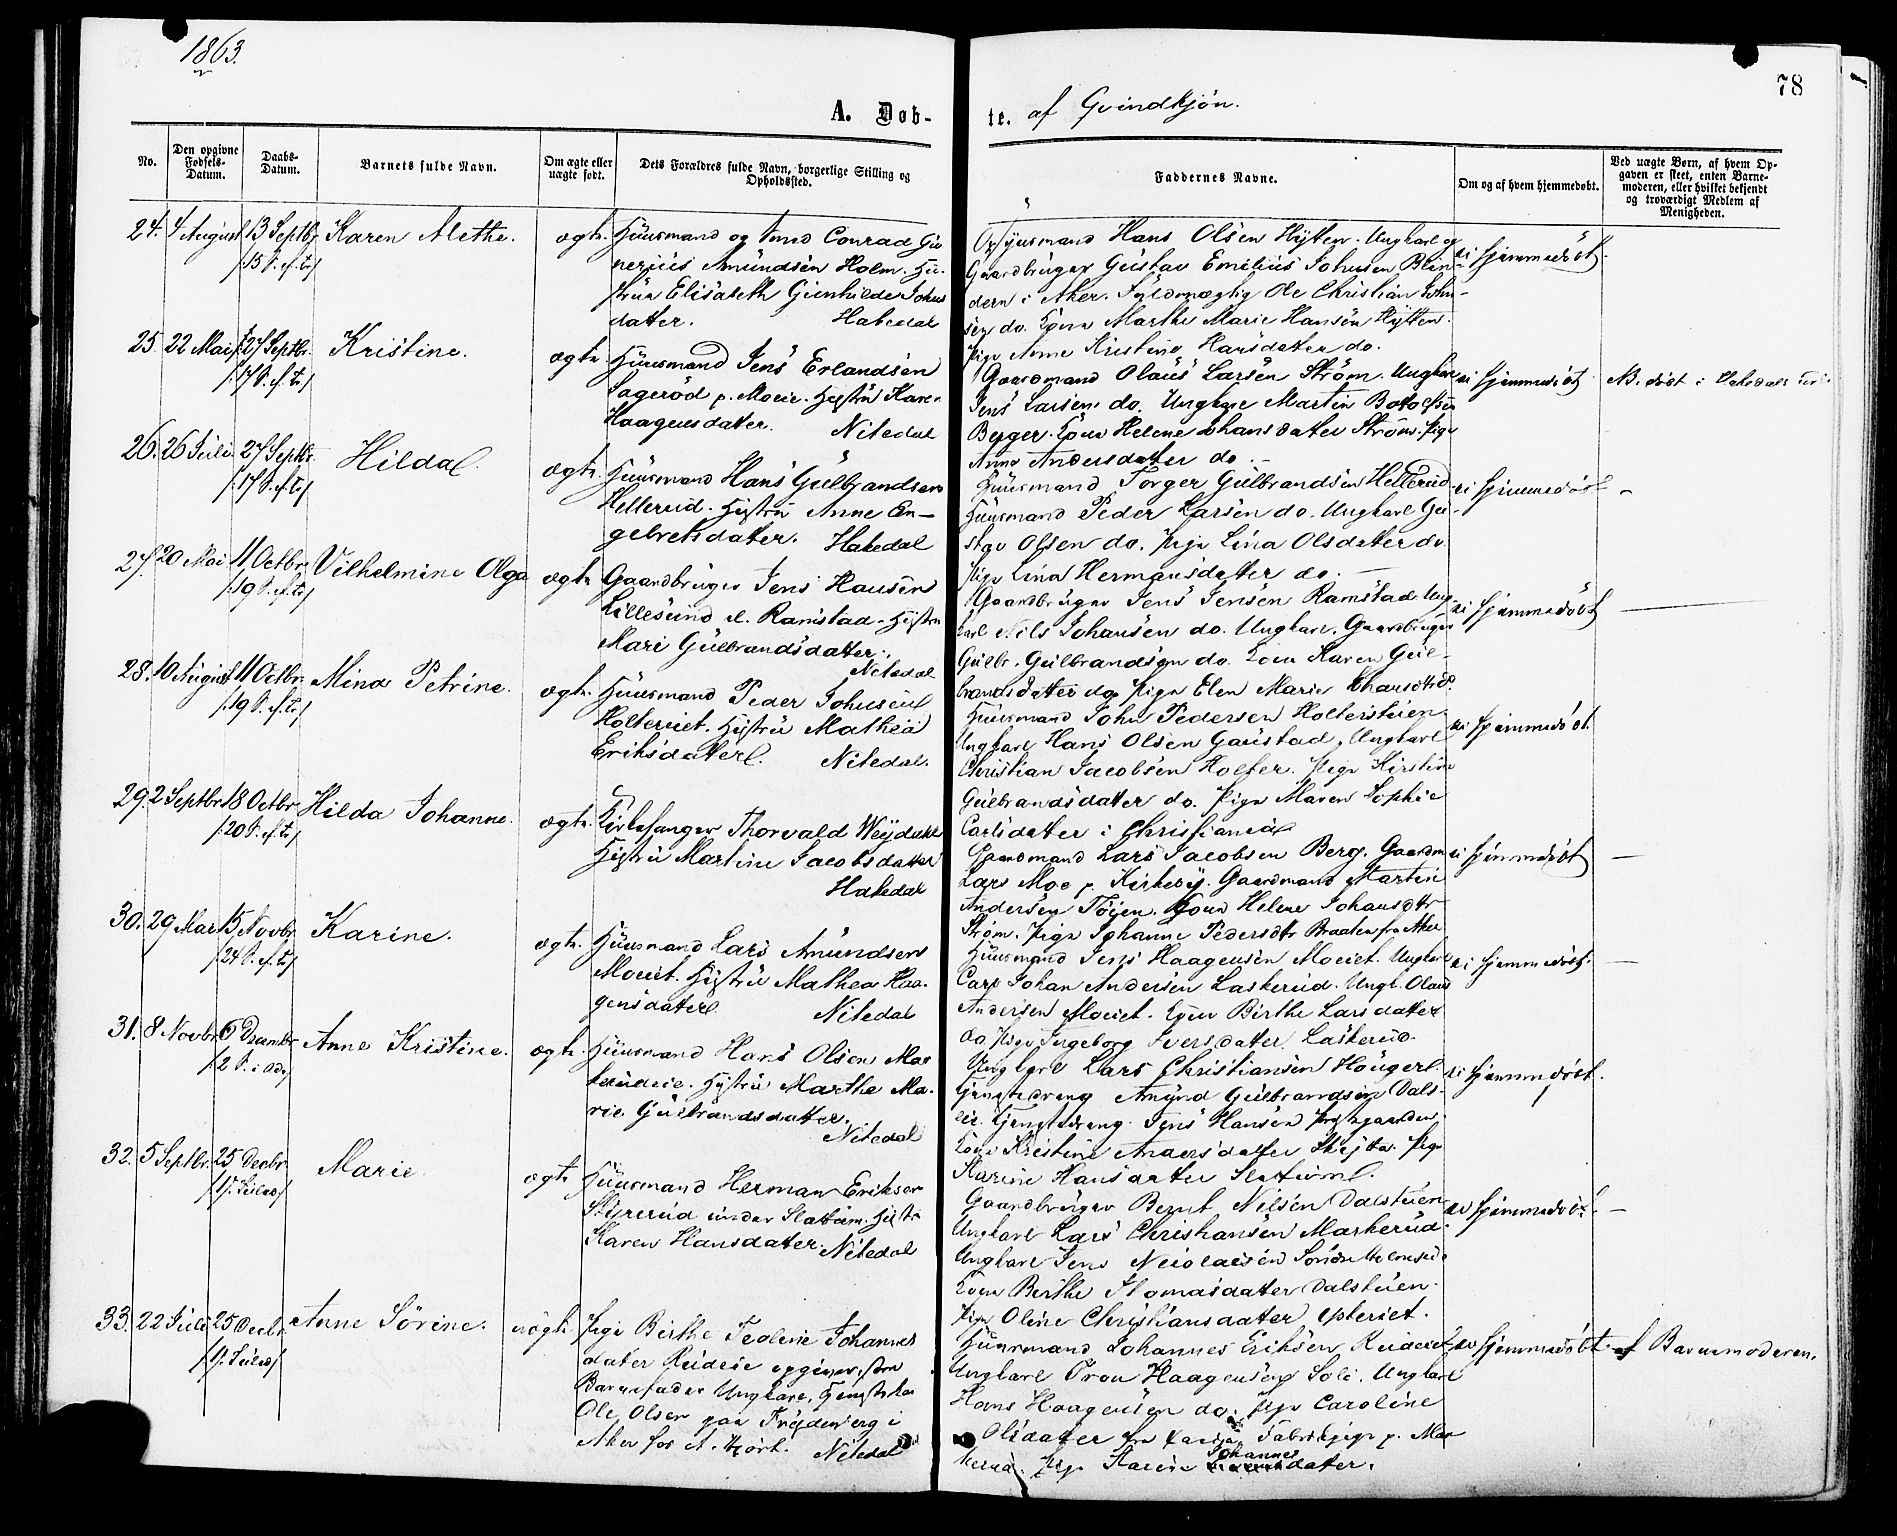 1863.
78
A. Døb-
te. af Qvindkjøn.
No.
Den opgivne Fødsels-Datum.
Daabs-Datum.
Barnets fulde Navn.
Om ægte eller uægte født.
Dets Forældres fulde Navn, borgerlige Stilling og Opholdssted.
Faddernes Navne.
Om og af hvem hjemmedøbt.
Ved uægte Børn, af hvem Opgaven er skeet, enten Barnemoderen, eller hvilket bekjendt og troværdigt Medlem af Menigheden.
24. 4 August 13 Septbr Karen Alethe. ægte.
/:15 S. ef. tr/
Huusmand og Smed Conrad Gu
nerius Amundsen Holm. Hu-
strue Elisabeth Gunhilde Johns
datter. Hakedal
Huusmand Hans Olsen Hytten. Ungkarl og
Gaardbruger Gustav Emilius Johnsen Blin-
dern i Aker. Fuldmægtig Ole Christian John-
sen do. Kone Marthe Marie Hansen Hytten.
Pige Anne Kristine Hansdatter do.
ei hjemmedøbt.
25. 22 Mai 27 Septbr. Kristine. ægte.
/:17 S. ef. tr/
Huusmand Jens Erlandsen
Sagerød p. Moeie. Hustru Karen
Haagensdatter. Nitedal
Gaardmand Olaus Larsen Strøm. Ungkarl
Jens Larsen do. Ungkarl Martin Botolfsen
Berger. Kone Helene Johansdatter Strøm. Pige
Anne Andersdatter do.
ei hjemmedøbt NB. døbt i Hakedals
26. 26 Juli. 27 Septbr. Hilda. ægte.
/:17 S. ef. tr/
Huusmand Hans Gulbrandsen
Hellerud. Hustru Anne En-
gebretsdatter. Hakedal
Huusmand Torger Gulbrandsen Hellerud.
Huusmand Peder Larsen do. Ungkarl Gu-
stav Olsen do. Pige Lina Olsdatter do.
Pige Lina Hermansdatter do.
ei hjemmedøbt –
27. 20 Mai 11 Octbr. Vilhelmine Olga ægte
/:19 S. ef. tr/
Gaardbruger Jens Hansen
Lillesund el. Ramstad. Hustru
Mari Gulbrandsdatter.
Nitedal
Gaardbruger Jens Jensen Ramstad. Ung-
karl Nils Johansen do. Ungkarl. Gaardbruger
Gulbr. Gulbrandsen do. Kone Karen Gul-
brandsdatter do. Pige Elen Marie do.
ei hjemmedøbt –
28. 10 August 11 Octbr. Mina Petrine. ægte.
/:19 S. ef. tr/
Huusmand Peder Johnsen
Holtereiet. Hustru Mathea
Eriksdatter. Nitedal.
Huusmand John Pedersen Holterstuen.
Ungkarl Hans Olsen Gaustad. Ungkarl
Christian Jacobsen Holter. Pige Kirstine
Gulbrandsdatter do. Pige Maren Sophie
Carlsdatter i Christiania
ei hjemmedøbt.
29. 2 Septbr. 18 Octbr. Hilda Johanne. ægte.
/:20 S. ef. tr/
Kirkesanger Thorvald Weydahl
Hustru Martine Jacobsdatter
Hakedal
Gaardmand Lars Jacobsen Berg. Gaardm.
Lars Moe p. Kirkeby. Gaardmand Martin
Andersen Tøien. Kone Helene Johansdtr
Strøm. Pige Johanne Pedersdtr Braaten fra Aker
ei hjemmedøbt –
30. 29 Mar. 15 Novbr. Karine. ægte.
/:24 S. ef. tr/
Huusmand Lars Amundsen
Moeiet. Hustru Mathea Haa-
gensdatter. Nitedal
Huusmand Jens Haagensen Moeiet. Ungkarl
Carl Johan Andersen Laskerud. Ungk. Olaus
Andersen Moeiet. Kone Birthe Larsdatter
do. Pige Ingeborg Iversdatter Laskerud.
ei hjemmedøbt. –
31. 8 Novbr. 6 Decembr Anne Kristine. ægte.
/:2 S. i Adv/
Huusmand Hans Olsen Mar
kerudeie. Hustru Marthe Ma-
rie Gulbrandsdatter.
Nitedal
Ungkarl Lars Christiansen Haugerl.
Tjenstedreng Amund Gulbrandsen Dals-
eie. Tjenstedreng Jens Hansen Prestgaarden.
Kone Kristine Andersdatter Skytta. Pige
Karine Hansdatter Slatum.
ei hjemmedøbt.
32. 5 Septbr. 25 Decbr. Marie. ægte
/:1. Juledag/
Huusmand Herman Eriksen
Skyrerud under Slattum. Hustru
Karen Hansdatter. Nitedal
Gaardbruger Bernt Nilsen Dalstuen
Ungkarl Lars Christiansen Markerud.
Ungkarl Jens Nicolaisen Søndre
Kone Birthe Thomasdatter Dalstuen.
Pige Oline Christiansdatter
ei hjemmedøbt. –
33. 22 Juli 25 Decbr. Anne Sørine. uægte
/:1. Juledag/
Pige Birthe Teoline Johannes
datter Rudeie opgiver som
Barnefader Ungkarl, Tjenstekarl
Ole Olsen paa Frydenberg i
Aker for A. Hørt. Nitedal
Huusmand Johannes Eriksen Rudeiet.
Ungkarl Tron Haagensen Soli. Ungkarl
Hans Haagensen do. Pige Caroline
Olsdatter fra Fabrikpige p. Mar
kerud. Pige Karine Johannesdatter.
ei hjemmedøbt. af Barnemoderen.